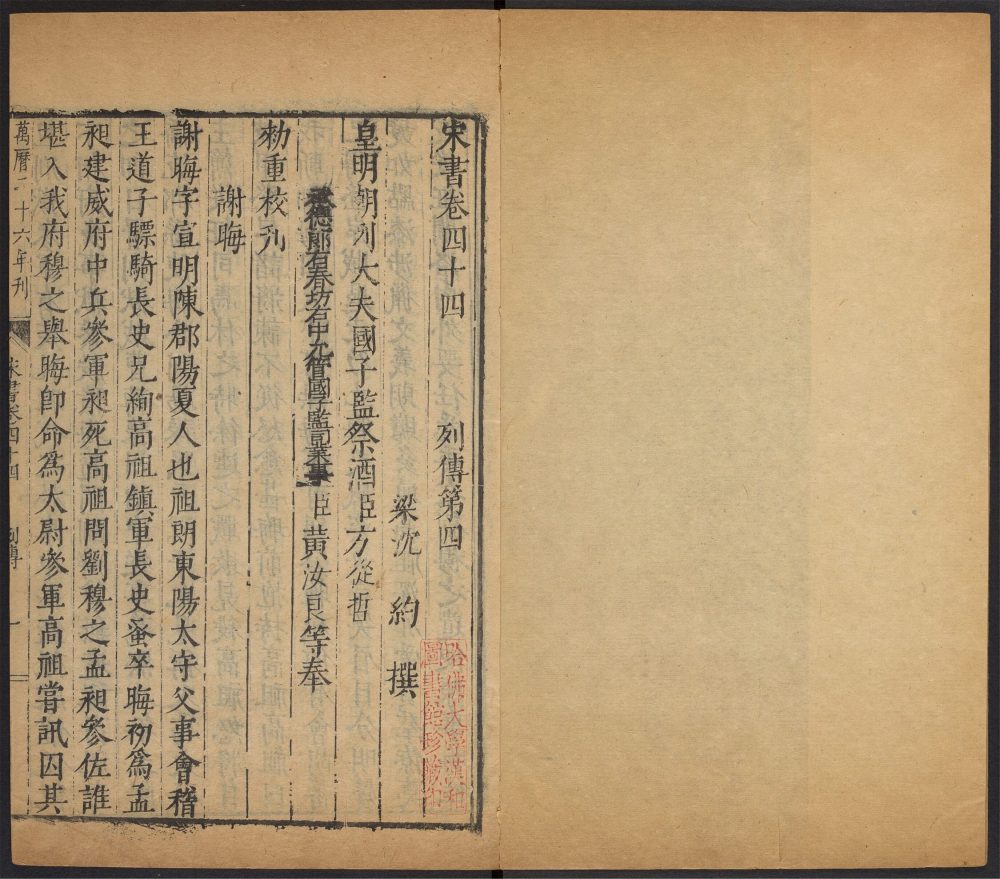 宋書卷四十四　列傳第四
梁沈　約　撰
皇明朝列大夫國子監祭酒臣方從哲
承德郎右春坊右中允管國子監司業事臣黃汝良等奉
勑重校刋
謝晦
謝晦字宣明陳郡陽夏人也祖朗東陽太守父事會稽
王道子驃騎長史兄絢高祖鎮軍長史蚤卒晦初爲孟
昶建威府中兵參軍昶死高祖問劉穆之孟昶參佐誰
堪入我府穆之舉晦卽命爲太尉參軍高祖嘗訊囚其
萬曆二十六年刊
宋書卷四十四　列傳　一
哈佛大學漢和
圖書館珍藏印